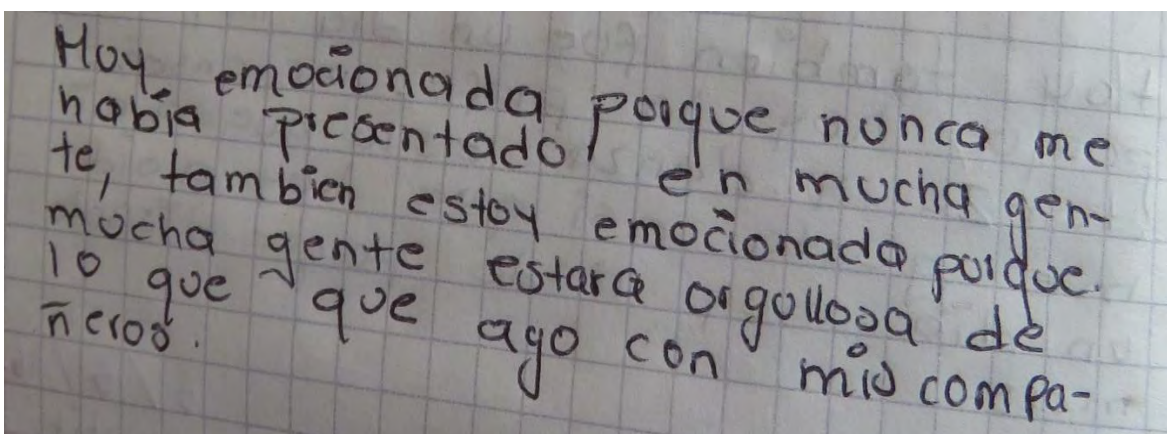 Hoy emocionada porque nunca me
habia presentado en mucha gen-
te, tambien estoy emocionada porque
mucha gente estara orgullosa de
lo que que ago con mis compa-
ñeros.